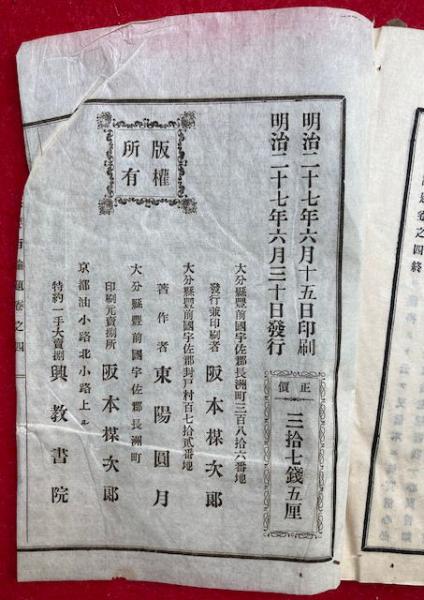 明治二十七年六月十五日印刷
明治二十七年六月三十日發行
正價
三拾七錢五厘
版權
所有
大分縣豐前國宇佐郡長洲町三百八拾六番地
發行兼印刷者 阪本楳次郎
大分縣豐前國宇佐郡封戸村百七拾貳番地
著作者 東陽圓月
大分縣豐前國宇佐郡長洲町
印刷元賣捌所 阪本楳次郎
京都油小路北小路上ル
特約一手大賣捌 興教書院
論題卷之四
卷之四終